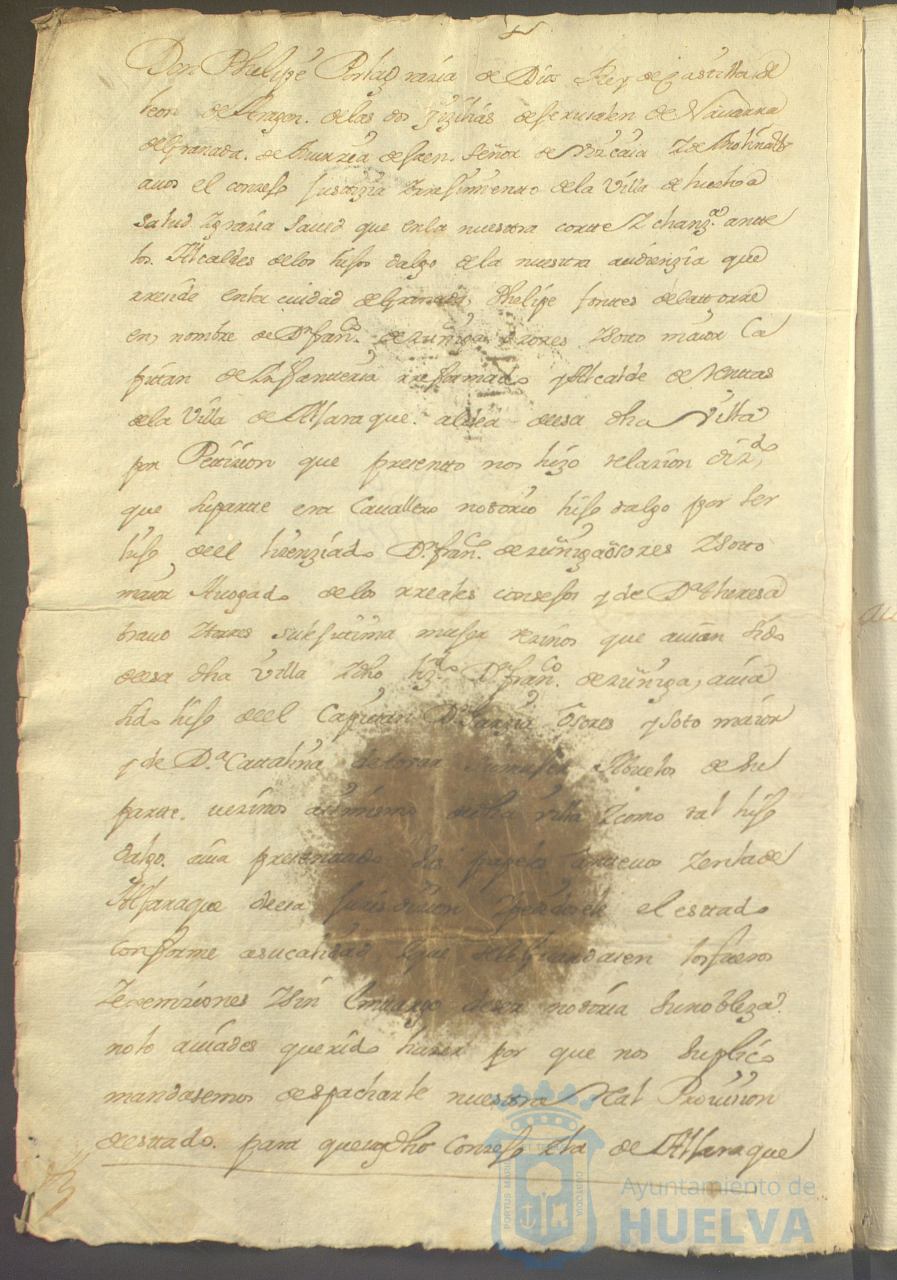 Don Phelipe Por la grazia de Dios Rey de Castilla de
leon de Aragon. de las dos Zizilias de Jerusalen de Navarra
de Granada. de murzia de Jaen. Señor de Vizcaia Z de Molina
avos el consejo Justizia Z rejimiento de la Villa de huelba
salud Z grazia Saved que en la nuestra corte Z chanzª ante
los Alcaldes de los hijos dalgo de la nuestra audienzia que
reside en la ciudad de Granada, Phelipe fontes de la torre
en nombre de Dn franco. de zuñiga ossores Z soto maior Ca
pitan de Infanteria reformado y Alcalde de Ventas
de la Villa de Aljaraque. aldea de esa dha Villa
por Petizion que presento nos hizo relazion diz.do
que su parte era Cavallero notorio hijo dalgo por ser
hijo de el lizenziado Dn franco. de zuñiga ossores Z soto
maior Avogado de los rreales consejos y de Dª theresa
bravo su lejitima muger vezinos que avian sido
de esa dha Villa Z dho liz.do Dn franco. de zuñiga, avia
sido hijo de el Capitan Dn Garzia Osores y Soto maior
y de D.ª Catalina su muger Abuelos de su
parte. vezinos asimismo de dha villa Z como tal hijo
dalgo. avia presentado sus papeles Z en la de
Aljaraque de esa jurisdizion el estado
conforme a su calidad Z que se le guardasen los fueros
Z esempziones Z sin embargo de ser notoria su nobleza.
no lo aviades querido hazer por que nos suplico
mandasemos despacharle nuestra Real Provision
de estado. para que dho consejo de Aljaraque
PORTUS MARIS
CUSTODIA
Ayuntamiento de
HUELVA